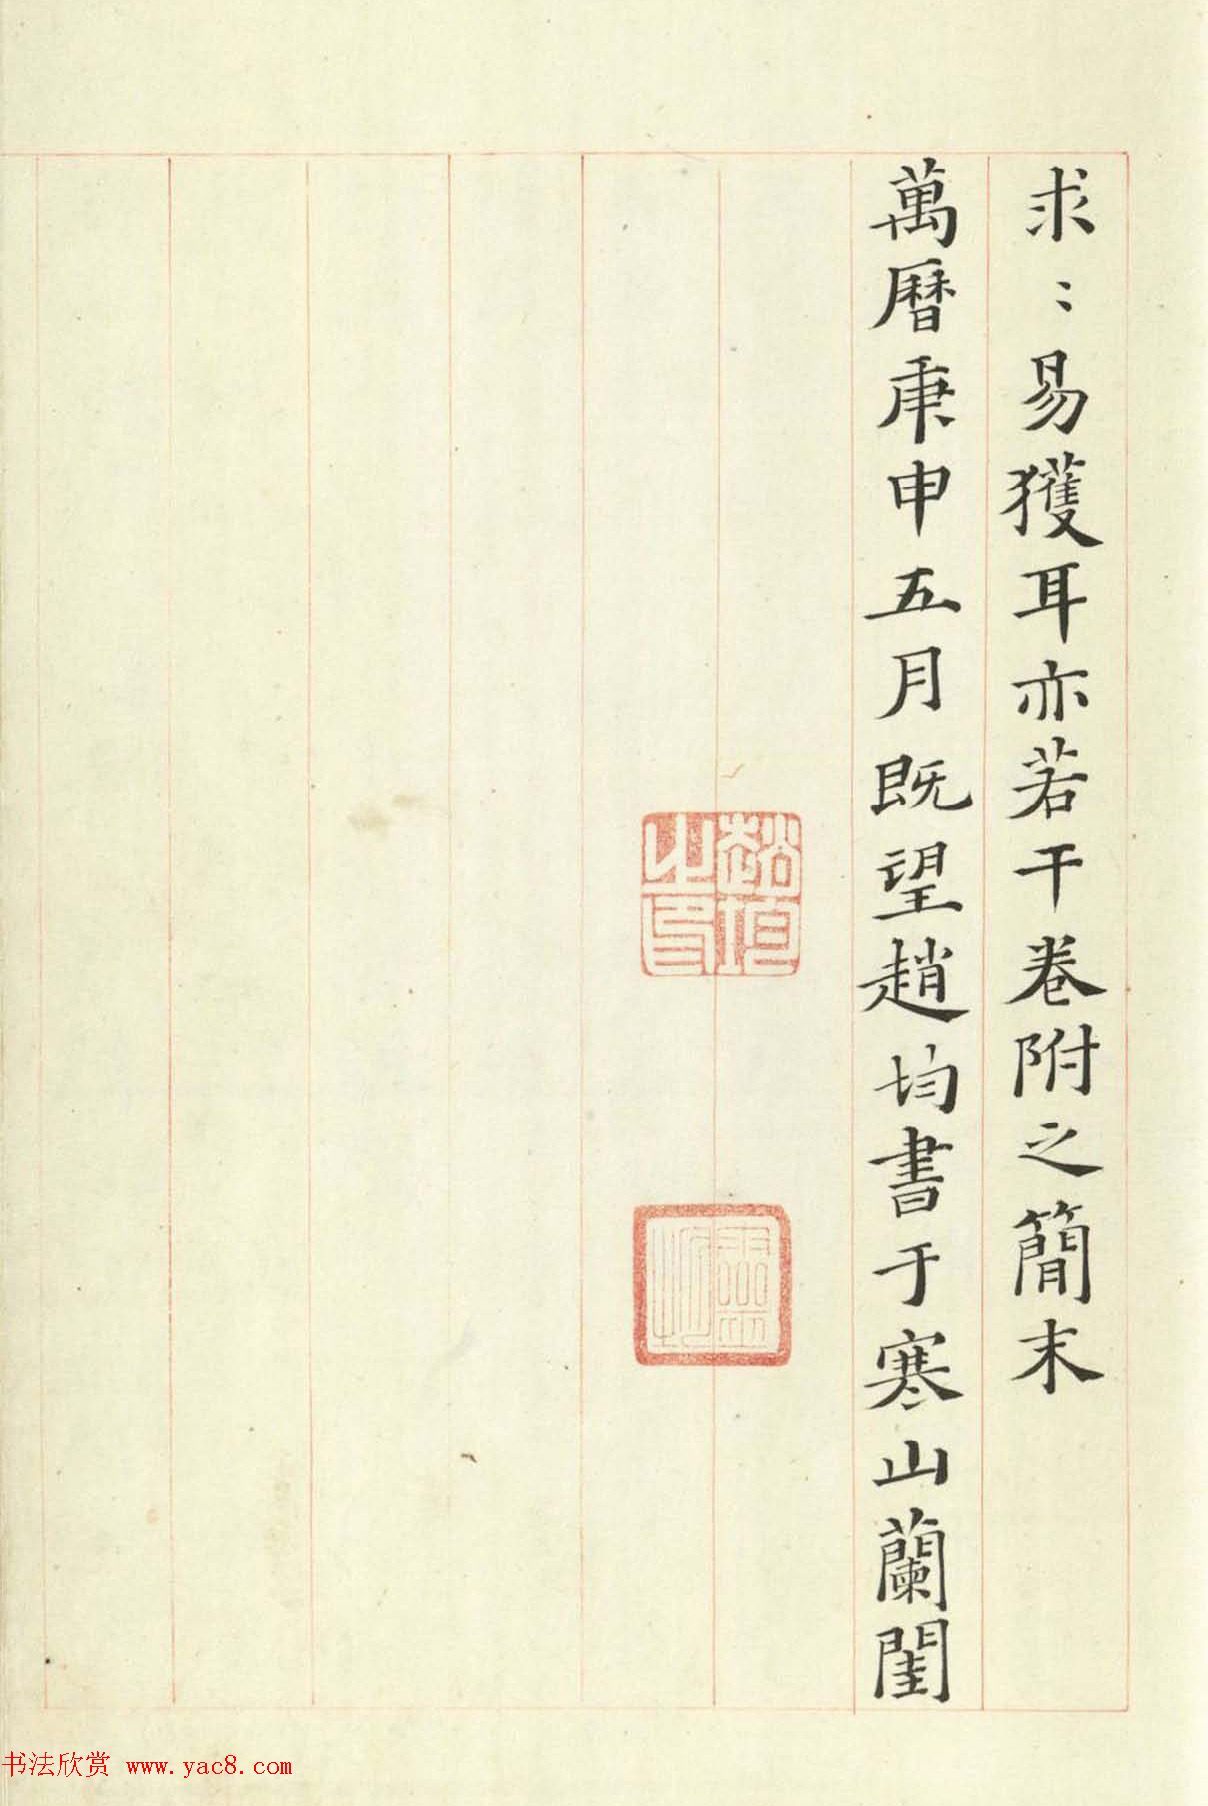 求：易獲耳亦若干卷附之簡末
萬曆庚申五月既望趙均書于寒山蘭閨
趙均
之印
靈均
书法欣赏 www.yac8.com